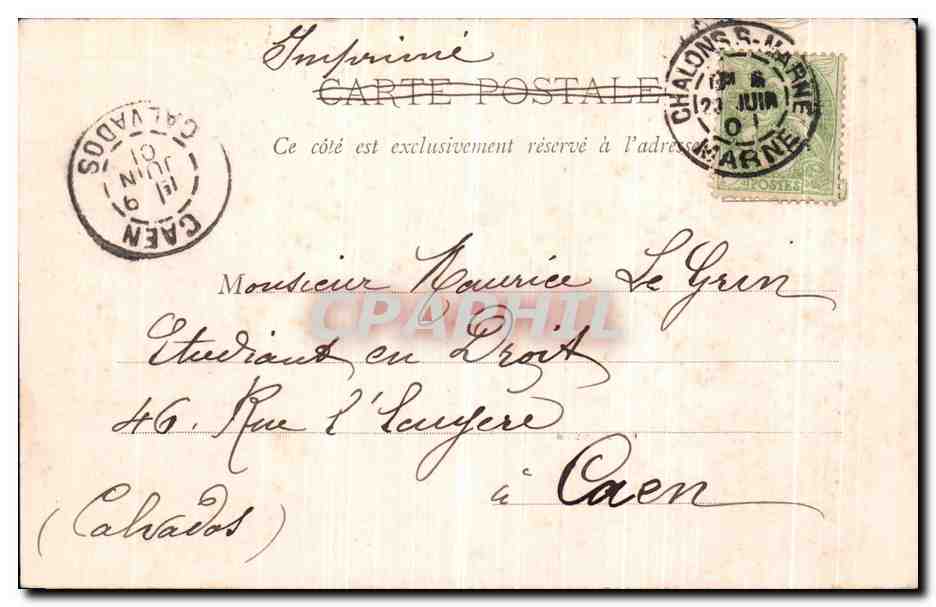 Imprimé
CARTE POSTALE
Ce côté est exclusivement réservé à l'adresse
CHALONS-S-MARNE
JUIN
MARNE
POSTES
CALVADOS
JUIN
01
CAEN
Monsieur Maurice Le Grin
CPAPHIL
Etudiant en Droit
46. Rue l'Ecuyère
à Caen
(Calvados)